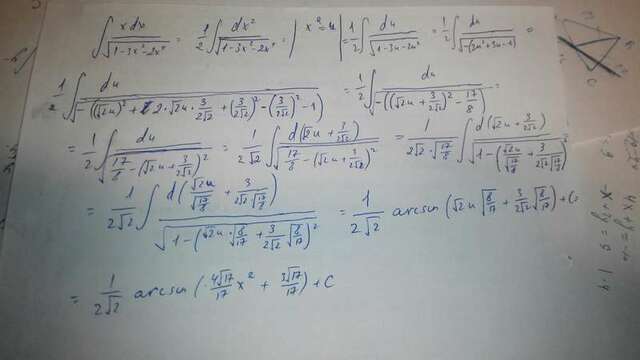 ∫ x dx / √(1-3x²-2x⁴) = 1/2 ∫ dx² / √(1-3x²-2x⁴) = | x² = u | = 1/2 ∫ du / √(1-3u-2u²) = 1/2 ∫ du / √(-(2u²+3u-1)) =
1/2 ∫ du / √(-((√2u)² + 2·√2u·3/(2√2) + (3/(2√2))² - (3/(2√2))² - 1)) = 1/2 ∫ du / √(-((√2u + 3/(2√2))² - 17/8)) =
= 1/2 ∫ du / √(17/8 - (√2u + 3/(2√2))²) = 1/(2√2) ∫ d(√2u + 3/(2√2)) / √(17/8 - (√2u + 3/(2√2))²) = 1/(2√2·√(17/8)) ∫ d(√2u + 3/(2√2)) / √(1 - (√2u/√(17/8) + 3/(2√2√(17/8)))²) =
= 1/(2√2) ∫ d(√2u/√(17/8) + 3/(2√2·√(17/8))) / √(1 - (√2u·√(8/17) + 3/(2√2)·√(8/17))²) = 1/(2√2) arcsin(√2u√(8/17) + 3/(2√2)√(8/17)) + C =
= 1/(2√2) arcsin(4√17/17 x² + 3√17/17) + C